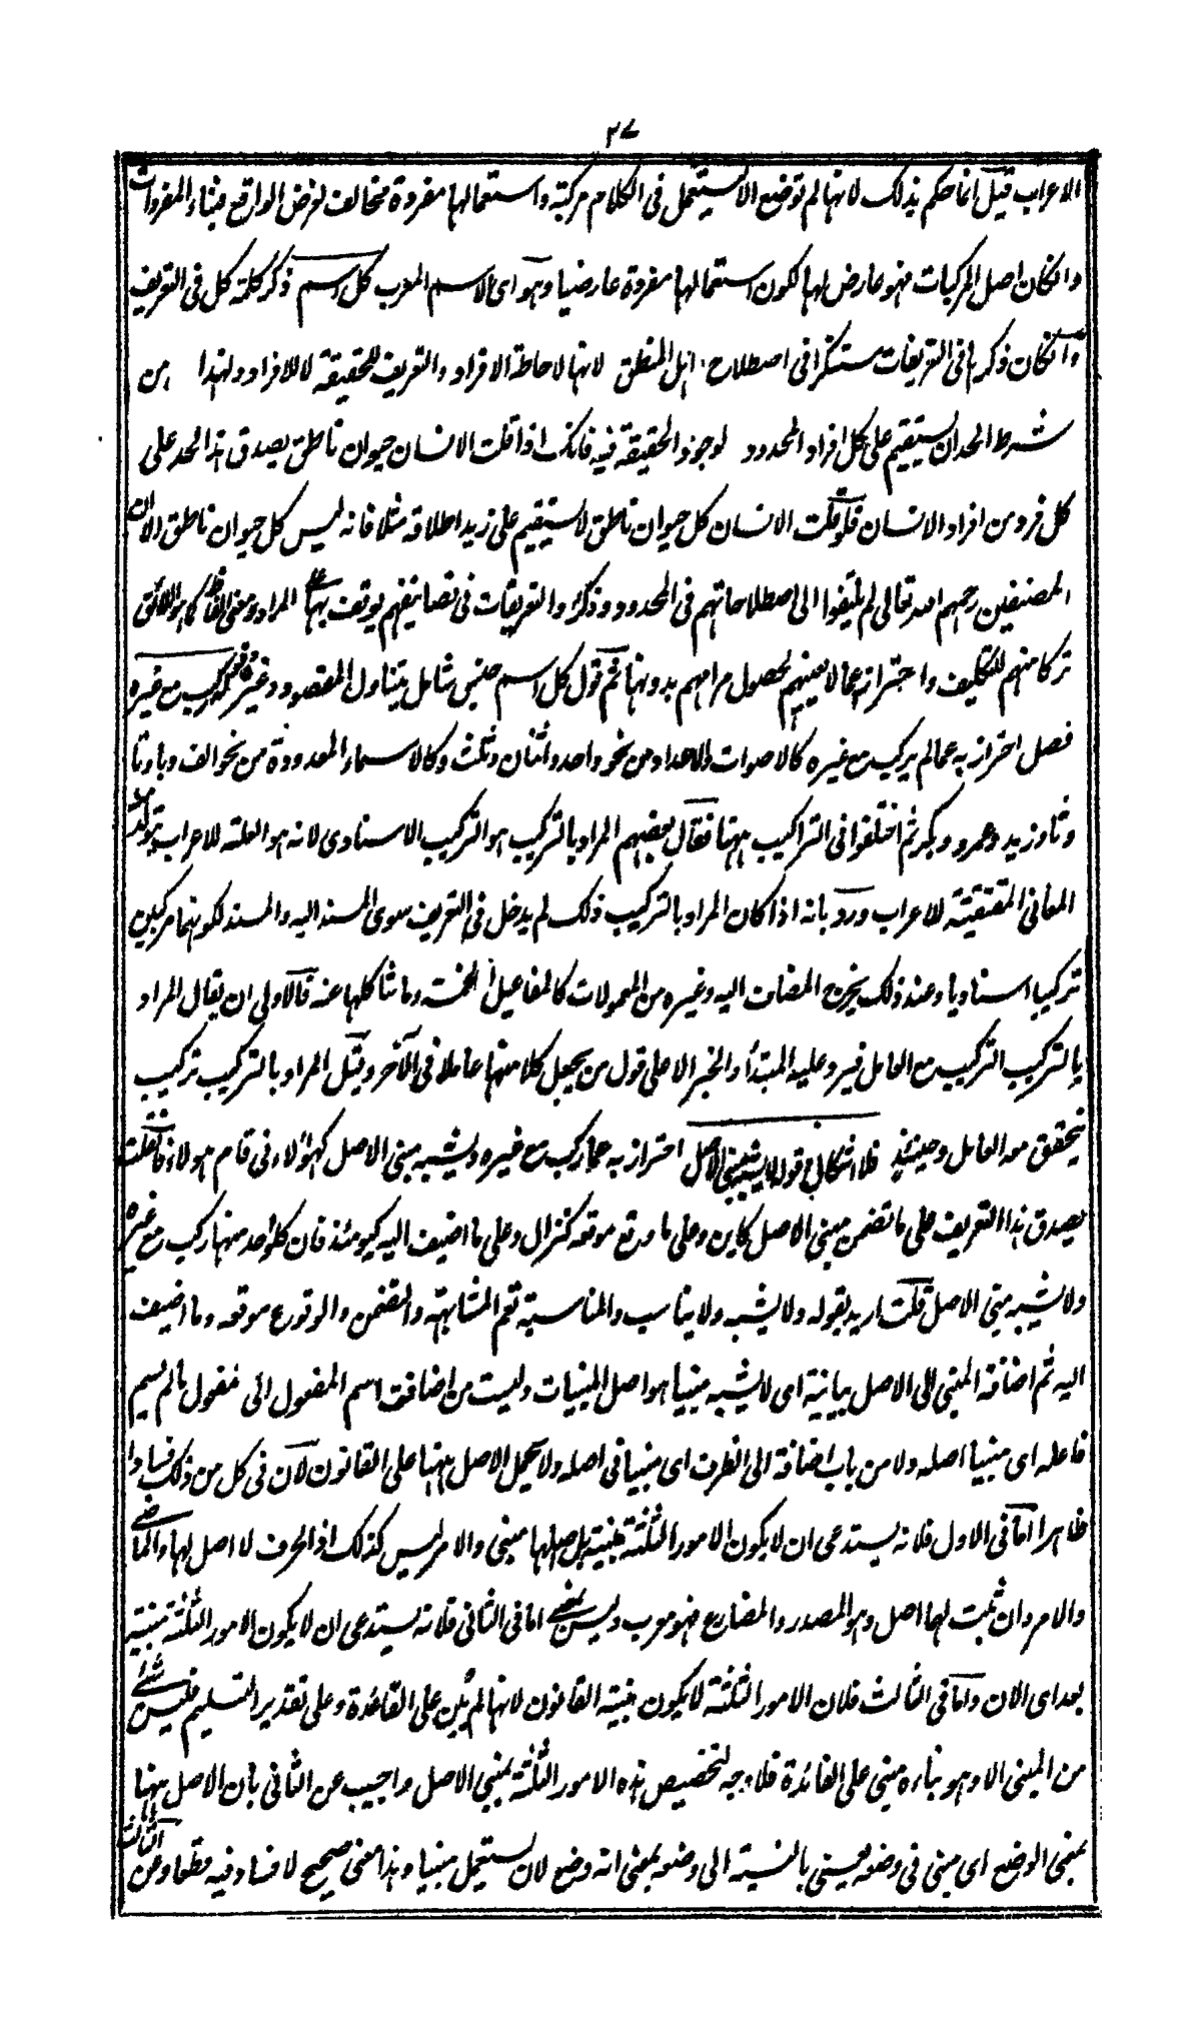 ٢٧
الاعراب قيل انما حكم بذلك لانها لم توضع الا ليستعمل فى الكلام مركبة واستعمالها مفردة مخالف لغرض الواضع فبناء المفردات
وان كان اصل المركبات فهو عارض لها لكون استعمالها مفردة عارضيا وهو اى الاسم المعرب كل اسم ذكر كلمة كل فى التعريف
وان كان ذكرها فى التعريفات مستنكرا فى اصطلاح اهل المنطق لانها لاحاطة الافراد والتعريف للحقيقة لا للافراد ولهذا من
شرط الحد ان يستقيم على كل افراد المحدود لوجود الحقيقة فيه فانك اذا قلت الانسان حيوان ناطق يصدق هذا الحد على
كل فرد من افراد الانسان فلو قلت الانسان كل حيوان ناطق لا يستقيم على زيد اطلاقه مثلا فانه ليس كل حيوان ناطق الا ان
المصنفين رحمهم الله تعالى لم يلتفتوا الى اصطلاحاتهم فى المحدود وذكر والتعريفات فى تصانيفهم يوقف بها على المراد ومعنى الفاظ كما هو اللائق
تركا منهم للتكليف واحترازا عما لا يعنيهم لحصول مرامهم بدونها ثم قول كل اسم جنس شامل يتناول المقصود وغيره وقوله مركب مع غيره
فصل احتراز به عما لم يركب مع غيره كالاصوات والاعداد من نحو واحد واثنان وثلث وكالاسماء المعدودة من نحو الف وبا وتا
وثا وزيد وعمرو وبكر ثم اختلفوا فى التراكيب ههنا فقال بعضهم المراد بالتركيب هو التركيب الاسنادى لانه هو العلة للاعراب بتولد
المعانى المقتضية للاعراب ورد بانه اذا كان المراد بالتركيب ذلك لم يدخل فى التعريف سوى المسند اليه والمسند لكونهما مركبين
تركيبا اسناديا وعند ذلك يخرج المضاف اليه وغيره من المعمولات كالمفاعيل الخمسة وما شاكلها عنه فالاولى ان يقال المراد
بالتركيب التركيب مع العامل فيرد عليه المبتدأ والخبر الا على قول من يجعل كلا منهما عاملا فى الآخر وقيل المراد بالتركيب تركيب
يتحقق معه العامل وحينئذ فلا اشكال فى قوله لا يشبه مبنى الاصل احتراز به عما ركب مع غيره ويشبه مبنى الاصل كهؤلاء فى قام هولاء فان قلت
يصدق هذا التعريف على ما تضمن مبنى الاصل كاين وعلى ما وقع موقعه كنزال وعلى ما اضيف اليه كيومئذ فان كلواحد منها ركب مع غيره
ولا يشبه مبنى الاصل قلت اريد بقوله ولا يشبه ولا يناسب والمناسبة تعم المشابهة والتضمن والوقوع موقعه وما اضيف
اليه ثم اضافة المبنى الى الاصل بيانية اى لا يشبه مبنيا هو اصل المبنيات وليست من اضافة اسم المفعول الى مفعول مالم يسم
فاعله اى مبنيا اصله ولا من باب اضافة الى الظرف اى مبنيا فى اصله ولا يحمل الاصل ههنا على القانون لان فى كل من ذلك فسادا
ظاهرا اما فى الاول فلانه يستدعى ان لا يكون الامور الثلثة مبنية بل اصلها مبنى والامر ليس كذلك اذ الحرف لا اصل لها والماضى
والامر وان ثبت لها اصل وهو المصدر والمضارع فهو معرب وليس بمبنى اما فى الثانى فلانه يستدعى ان لا يكون الامور الثلثة مبنية
بعد اى الان واما فى الثالث فلان الامور الثلثة لا يكون مبنية القانون لانها لم يبن على القاعدة وعلى تقدير التسليم فليس شئ
من المبنى الا وهو بناءه مبنى على القاعدة فلا وجه لتخصيص هذه الامور الثلثة بمبنى الاصل واجيب عن الثانى بان الاصل ههنا
بمعنى الوضع اى مبنى فى وضعه يعنى بالنسبة الى وضعه بمعنى انه وضع لان يستعمل مبنيا وهذا معنى صحيح لا فساد فيه قطعا وعن الثالث